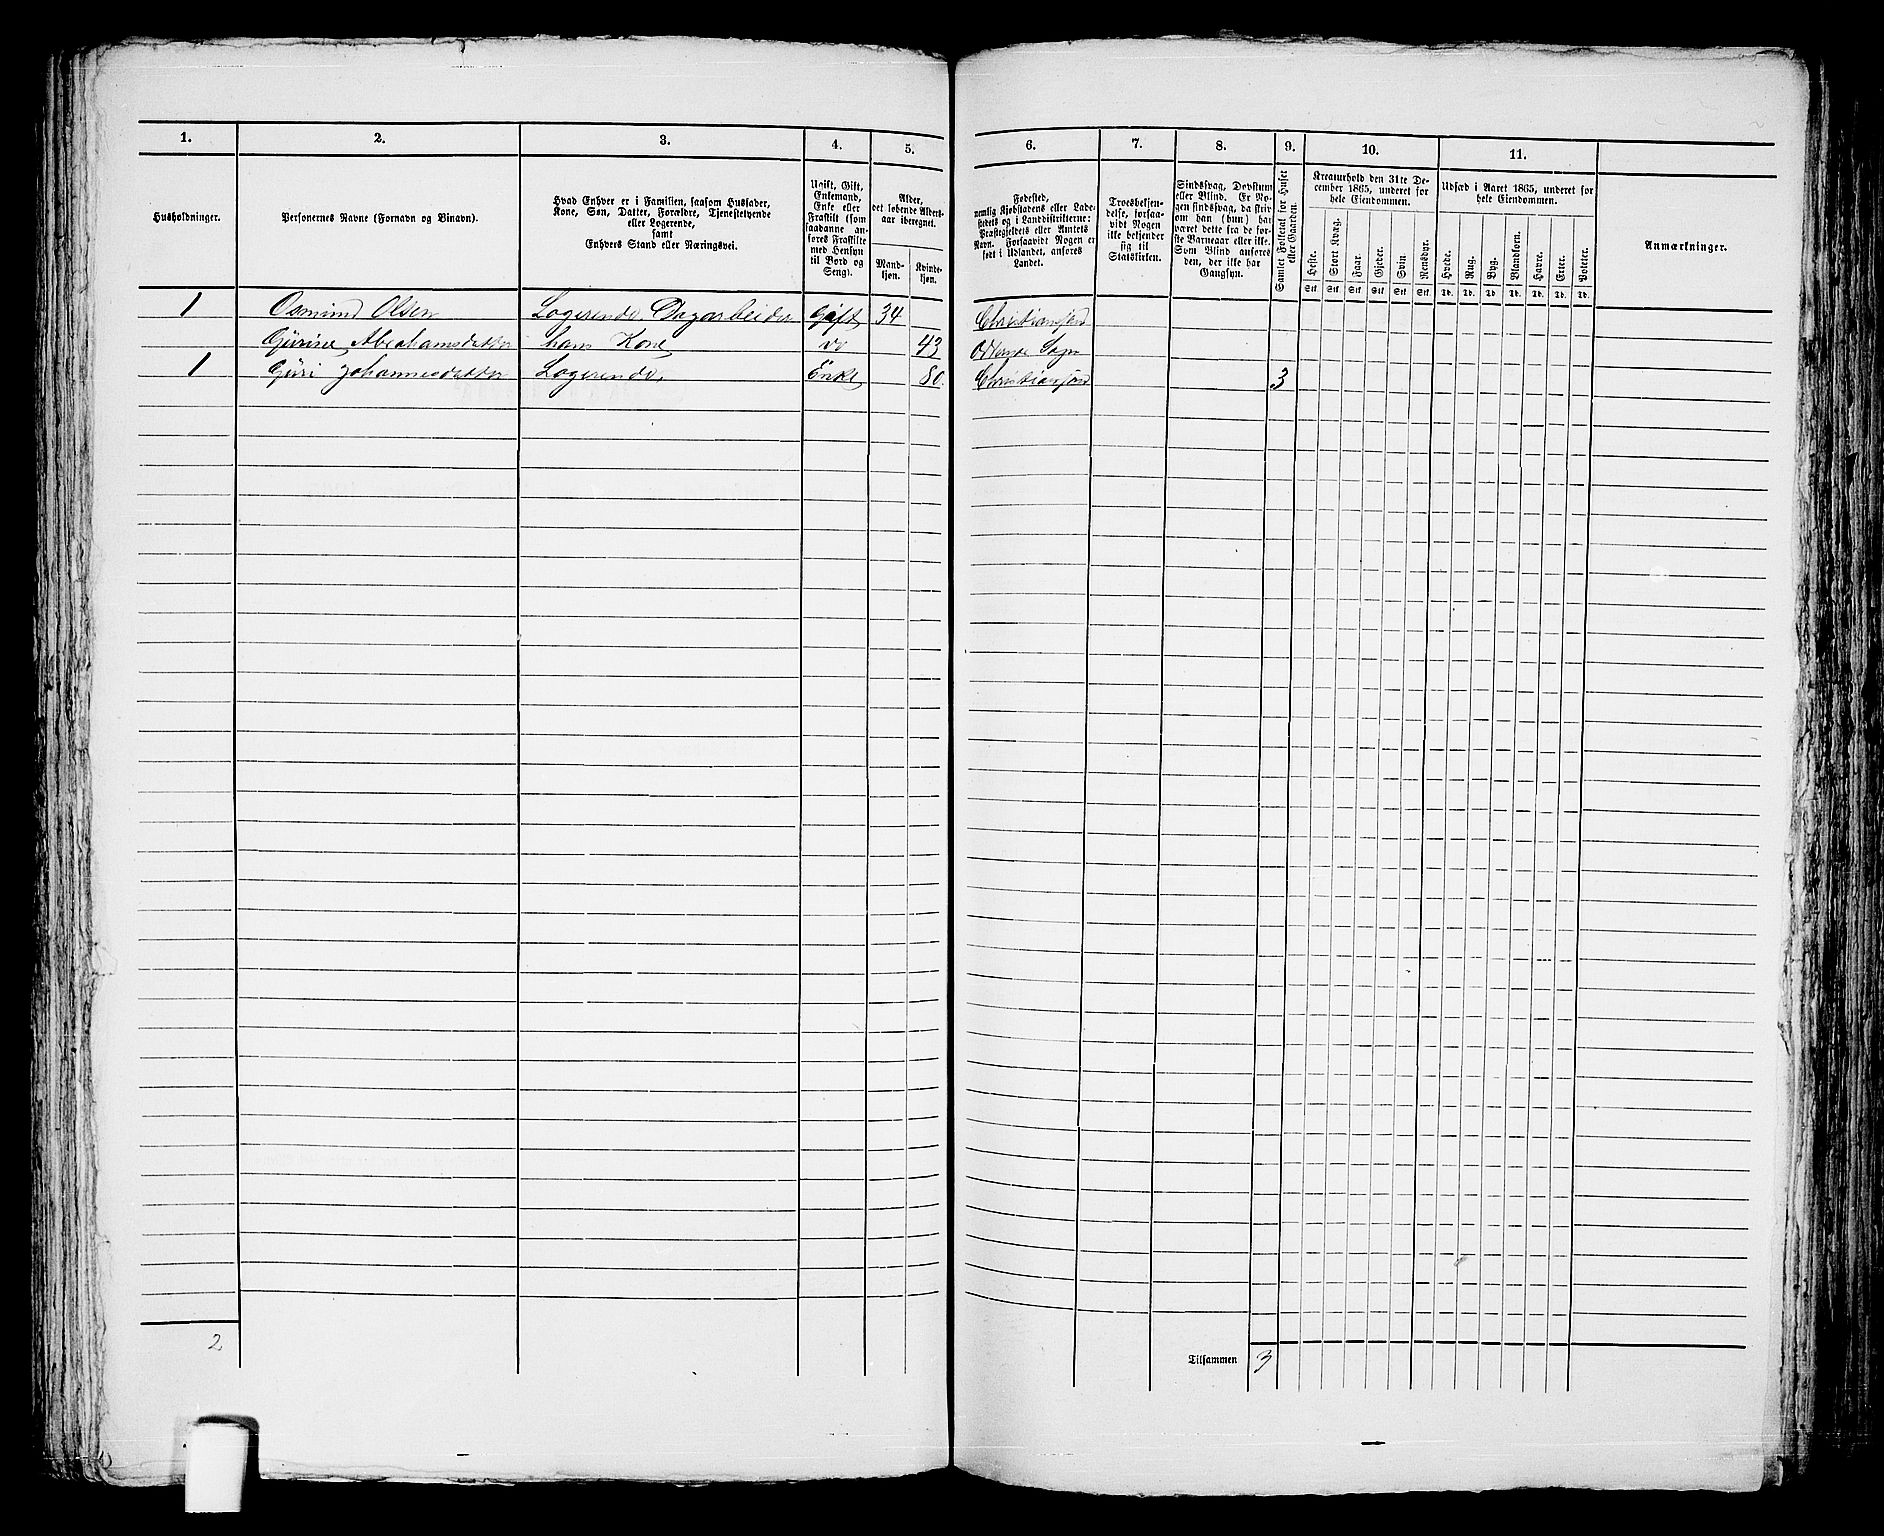 1. 2. 3. 4. 5. 6. 7. 8. 9. 10. 11.
Husholdninger.
Personernes Navne (Fornavn og Binavn).
Hvad Enhver er i Familien, saasom Husfader,
Kone, Søn, Datter, Forældre, Tjenestetyende
eller Logerende,
samt
Enhvers Stand eller Næringsvei.
Ugift, Gift,
Enkemand,
Enke eller
Fraskilt (som
saadanne an-
føres Fraskilte
med Hensyn
til Bord og
Seng).
Alder,
det løbende Alders-
aar iberegnet.
Mand-
kjøn.
Kvinde-
kjøn.
Fødested,
nemlig Kjøbstadens eller Lade-
stedets og i Landdistrikterne:
Præstegjeldets eller Amtets
Navn. Forsaavidt Nogen er
født i Udlandet, anføres
Landet.
Troesbekjen-
delse, forsaa-
vidt Nogen
ikke bekjender
sig til
Statskirken.
Sindssvag, Døvstum
eller Blind. Er No-
gen sindssvag, da skriv
om han (hun) har
været dette fra de før-
ste Barneaar eller ikke.
Som Blind anføres
den, der ikke har
Gangsyn.
Samlet Folketal for Huset
eller Gaarden.
Kreaturhold den 31te De-
cember 1865, underet for
hele Eiendommen.
Heste. Stort Kvæg. Faar. Gjeder. Svin. Rensdyr.
Stk. Stk. Stk. Stk. Stk. Stk.
Udsæd i Aaret 1865, underet for
hele Eiendommen.
Hvede. Rug. Byg. Blandkorn. Havre. Erter. Poteter.
Td. Td. Td. Td. Td. Td. Td.
Anmærkninger.
1 Osmund Olsen Logerende Dagarbeider Gift 34 Christiansand
Gurine Abrahamsdatter hans Kone do 43 Oddernes Sogn
1 Guri Johannesdatter Logerende Enke 80. Christiansand 3
2
Tilsammen 3